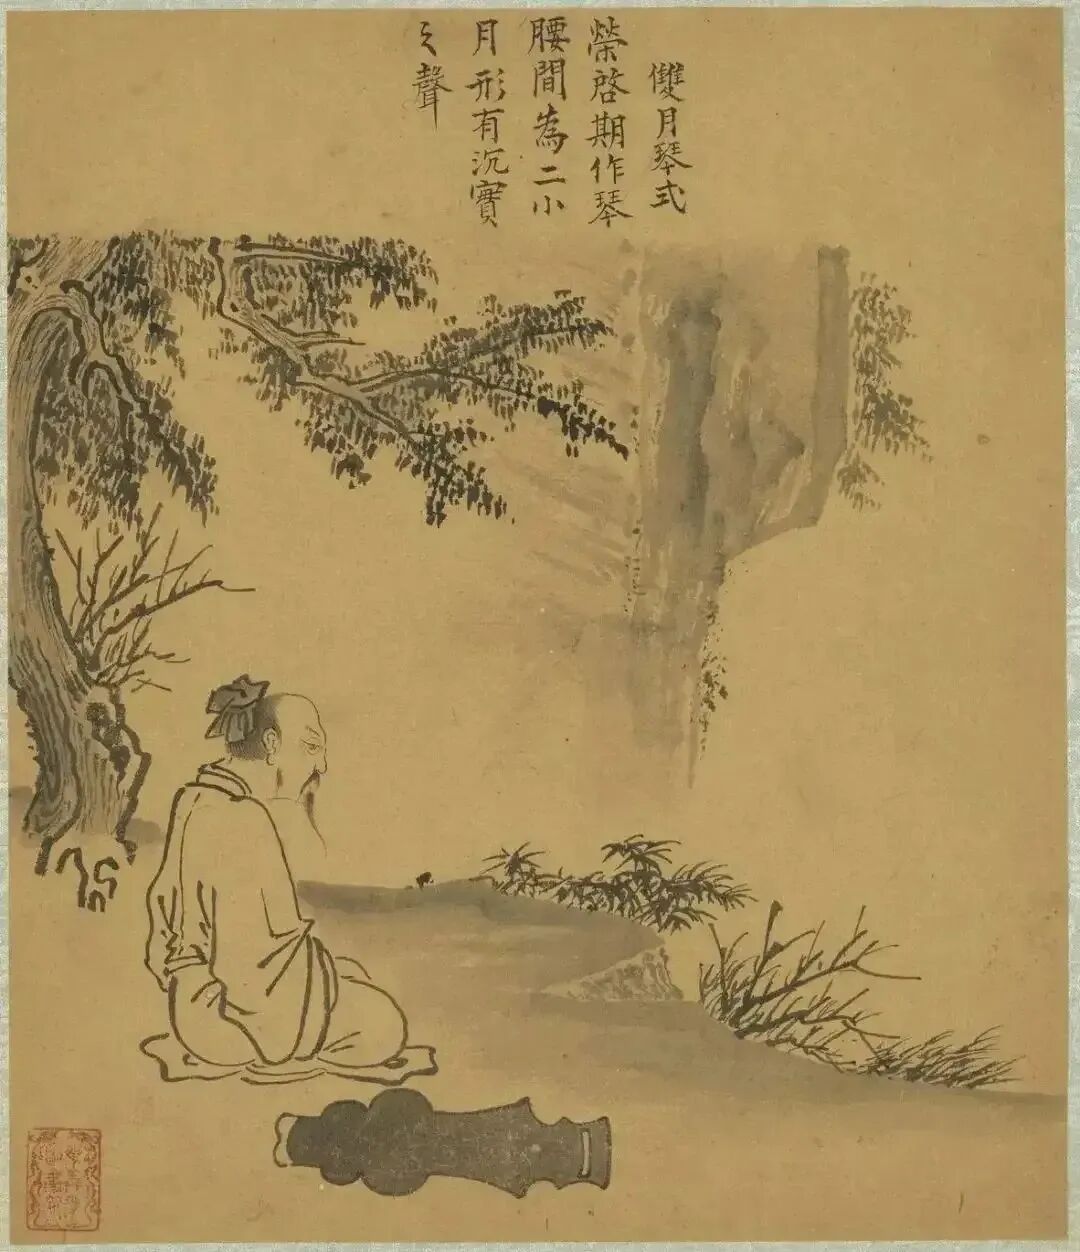 雙月琴式
榮啓期作琴
腰間為二小
月形有沉實
之聲